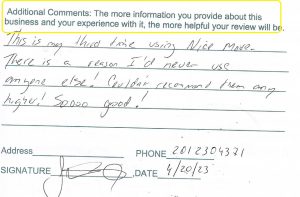 Additional Comments: The more information you provide about this
business and your experience with it, the more helpful your review will be.
This is my third time using Nice Move.
There is a reason I'd never use
anyone else! Couldn't recommend them any
higher! Soooo good!
Address
PHONE 2012304371
SIGNATURE
DATE 4/20/23